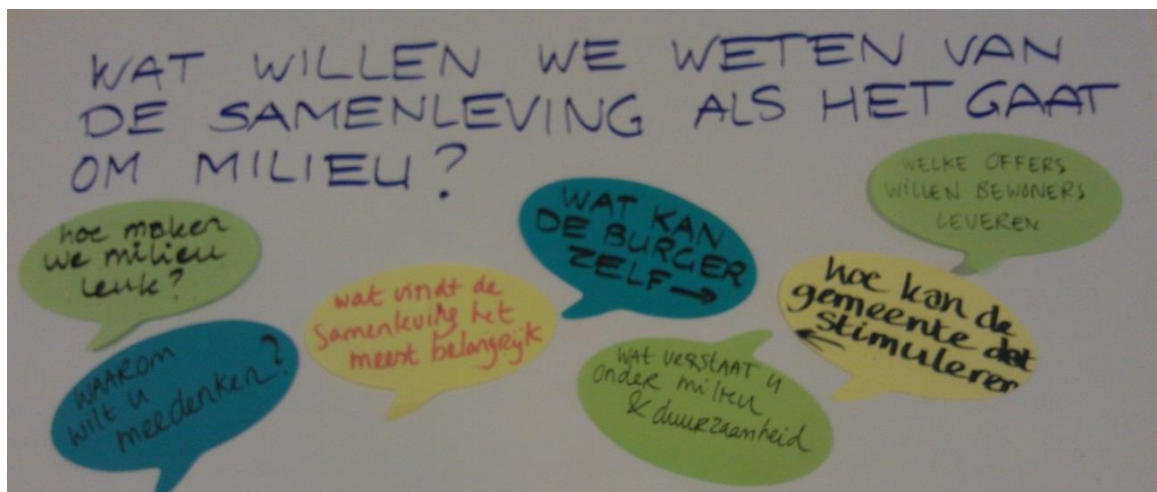 WAT WILLEN WE WETEN VAN
DE SAMENLEVING ALS HET GAAT
OM MILIEU?
hoe maken
we milieu
leuk?
WAAROM
wilt u
meedenken?
wat vindt de
samenleving het
meest belangrijk
WAT KAN
DE BURGER
ZELF →
WAT VERSTAAT U
onder milieu
& duurzaamheid
WELKE OFFERS
WILLEN BEWONERS
LEVEREN
hoe kan de
gemeente dat
← stimuleren